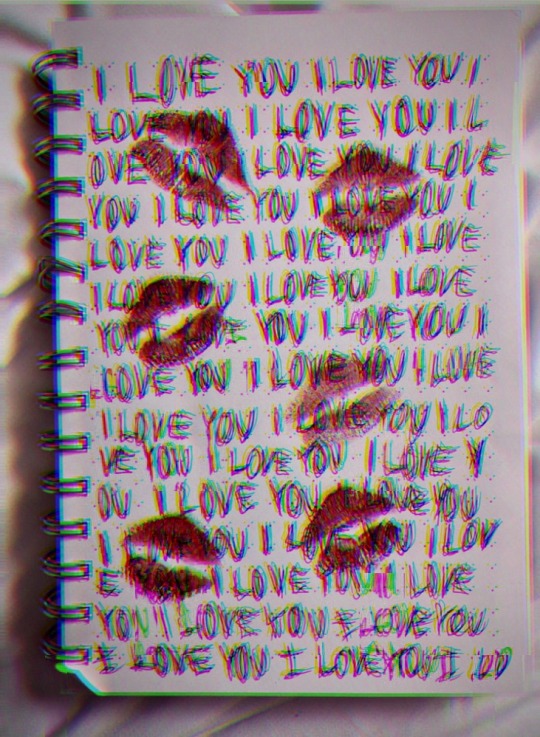 I LOVE YOU I LOVE YOU I
LOVE YOU I LOVE YOU I L
OVE YOU I LOVE YOU I LOVE
YOU I LOVE YOU I LOVE YOU I
LOVE YOU I LOVE YOU I LOVE
I LOVE YOU I LOVE YOU I LOVE
YOU I LOVE YOU I LOVE YOU I
LOVE YOU I LOVE YOU I LOVE
I LOVE YOU I LOVE YOU I LO
VE YOU I LOVE YOU I LOVE Y
OU I LOVE YOU I LOVE YOU
I LOVE YOU I LOVE YOU I LOV
E YOU I LOVE YOU I LOVE
YOU I LOVE YOU I LOVE YOU
I LOVE YOU I LOVE YOU I LO